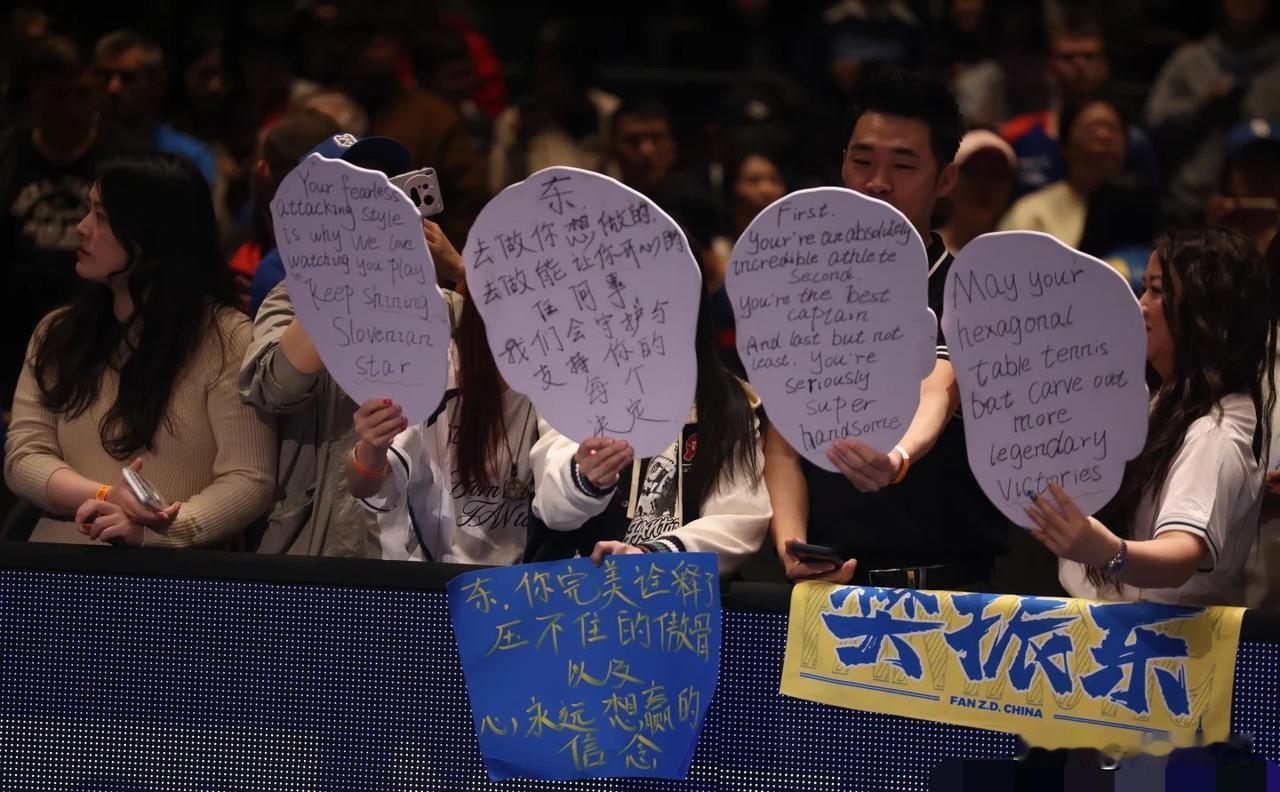 Your fearless
attacking style
is why we love
watching you play
"Keep shining.
Slovenian
star
东.
去做你想做的.
去做能让你开心的
任何事
我们会守护与
支持你的
每个
决定
First.
your're an absolutely
incredible athlete
Second.
you're the best
captain.
And last but not
least. You're
seriously
super
handsome
May your
hexagonal
table tennis
bat carve out
more
legendary
victories
东.你完美诠释了
压不住的傲骨
以及
心永远想赢的
信念
樊振东
FAN Z.D. CHINA